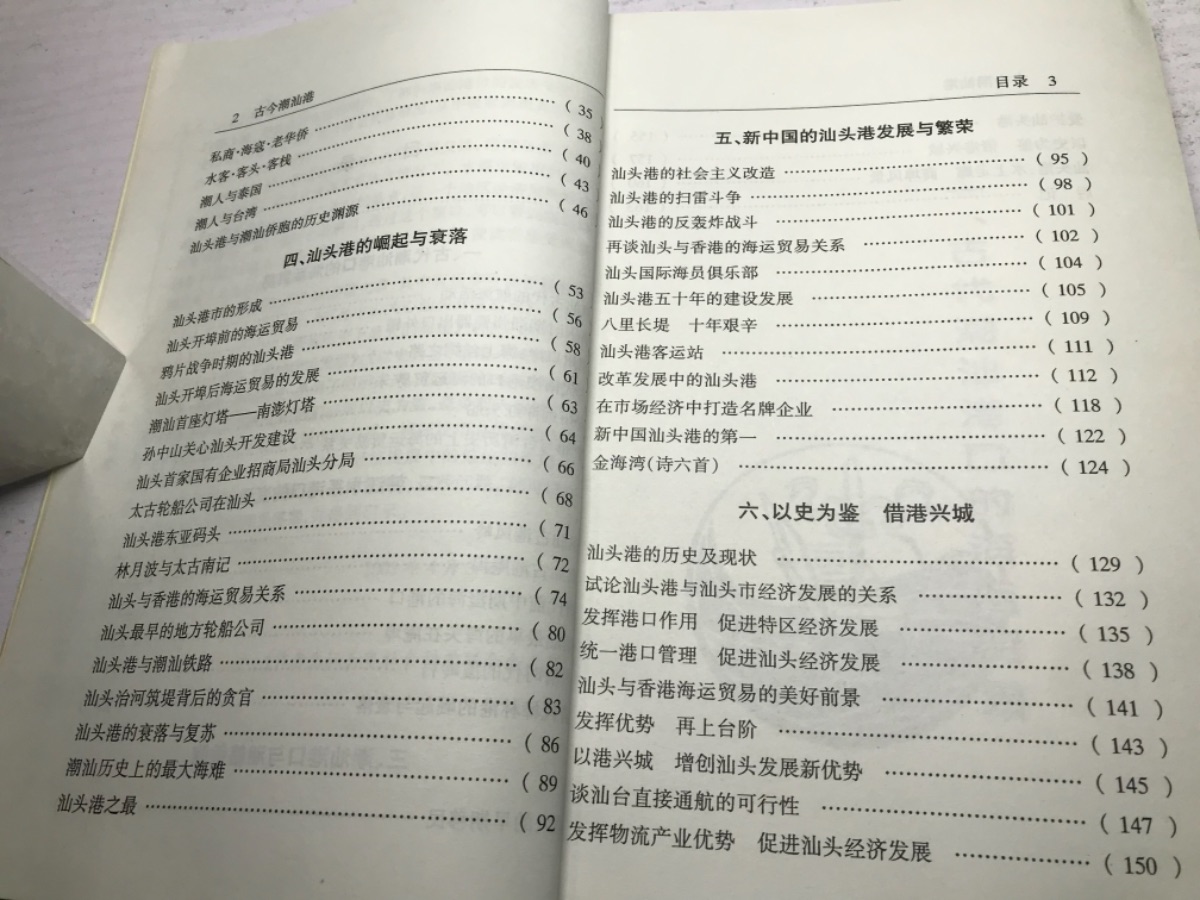 2 古今潮汕港
私商·海寇·老华侨 ………………………… ( 35
水客·客头·客栈 ………………………… ( 38
潮人与泰国 ………………………… ( 40
潮人与台湾 ………………………… ( 43
汕头港与潮汕侨胞的历史渊源 ………………………… ( 46
四、汕头港的崛起与衰落
汕头港市的形成 ………………………… ( 53
汕头开埠前的海运贸易 ………………………… ( 56
鸦片战争时期的汕头港 ………………………… ( 58
汕头开埠后海运贸易的发展 ………………………… ( 61
潮汕首座灯塔——南澎灯塔 ………………………… ( 63
孙中山关心汕头开发建设 ………………………… ( 64
汕头首家国有企业招商局汕头分局 ………………………… ( 66
太古轮船公司在汕头 ………………………… ( 68
汕头港东亚码头 ………………………… ( 71
林月波与太古南记 ………………………… ( 72
汕头与香港的海运贸易关系 ………………………… ( 74
汕头最早的地方轮船公司 ………………………… ( 80
汕头港与潮汕铁路 ………………………… ( 82
汕头治河筑堤背后的贪官 ………………………… ( 83
汕头港的衰落与复苏 ………………………… ( 86
潮汕历史上的最大海难 ………………………… ( 89
汕头港之最 ………………………… ( 92
目录 3
五、新中国的汕头港发展与繁荣
汕头港的社会主义改造 ………………………… ( 95 )
汕头港的扫雷斗争 ………………………… ( 98 )
汕头港的反轰炸战斗 ………………………… ( 101 )
再谈汕头与香港的海运贸易关系 ………………………… ( 102 )
汕头国际海员俱乐部 ………………………… ( 104 )
汕头港五十年的建设发展 ………………………… ( 105 )
八里长堤 十年艰辛 ………………………… ( 109 )
汕头港客运站 ………………………… ( 111 )
改革发展中的汕头港 ………………………… ( 112 )
在市场经济中打造名牌企业 ………………………… ( 118 )
新中国汕头港的第一 ………………………… ( 122 )
金海湾(诗六首) ………………………… ( 124 )
六、以史为鉴 借港兴城
汕头港的历史及现状 ………………………… ( 129 )
试论汕头港与汕头市经济发展的关系 ………………………… ( 132 )
发挥港口作用 促进特区经济发展 ………………………… ( 135 )
统一港口管理 促进汕头经济发展 ………………………… ( 138 )
汕头与香港海运贸易的美好前景 ………………………… ( 141 )
发挥优势 再上台阶 ………………………… ( 143 )
以港兴城 增创汕头发展新优势 ………………………… ( 145 )
谈汕台直接通航的可行性 ………………………… ( 147 )
发挥物流产业优势 促进汕头经济发展 ………………………… ( 150 )